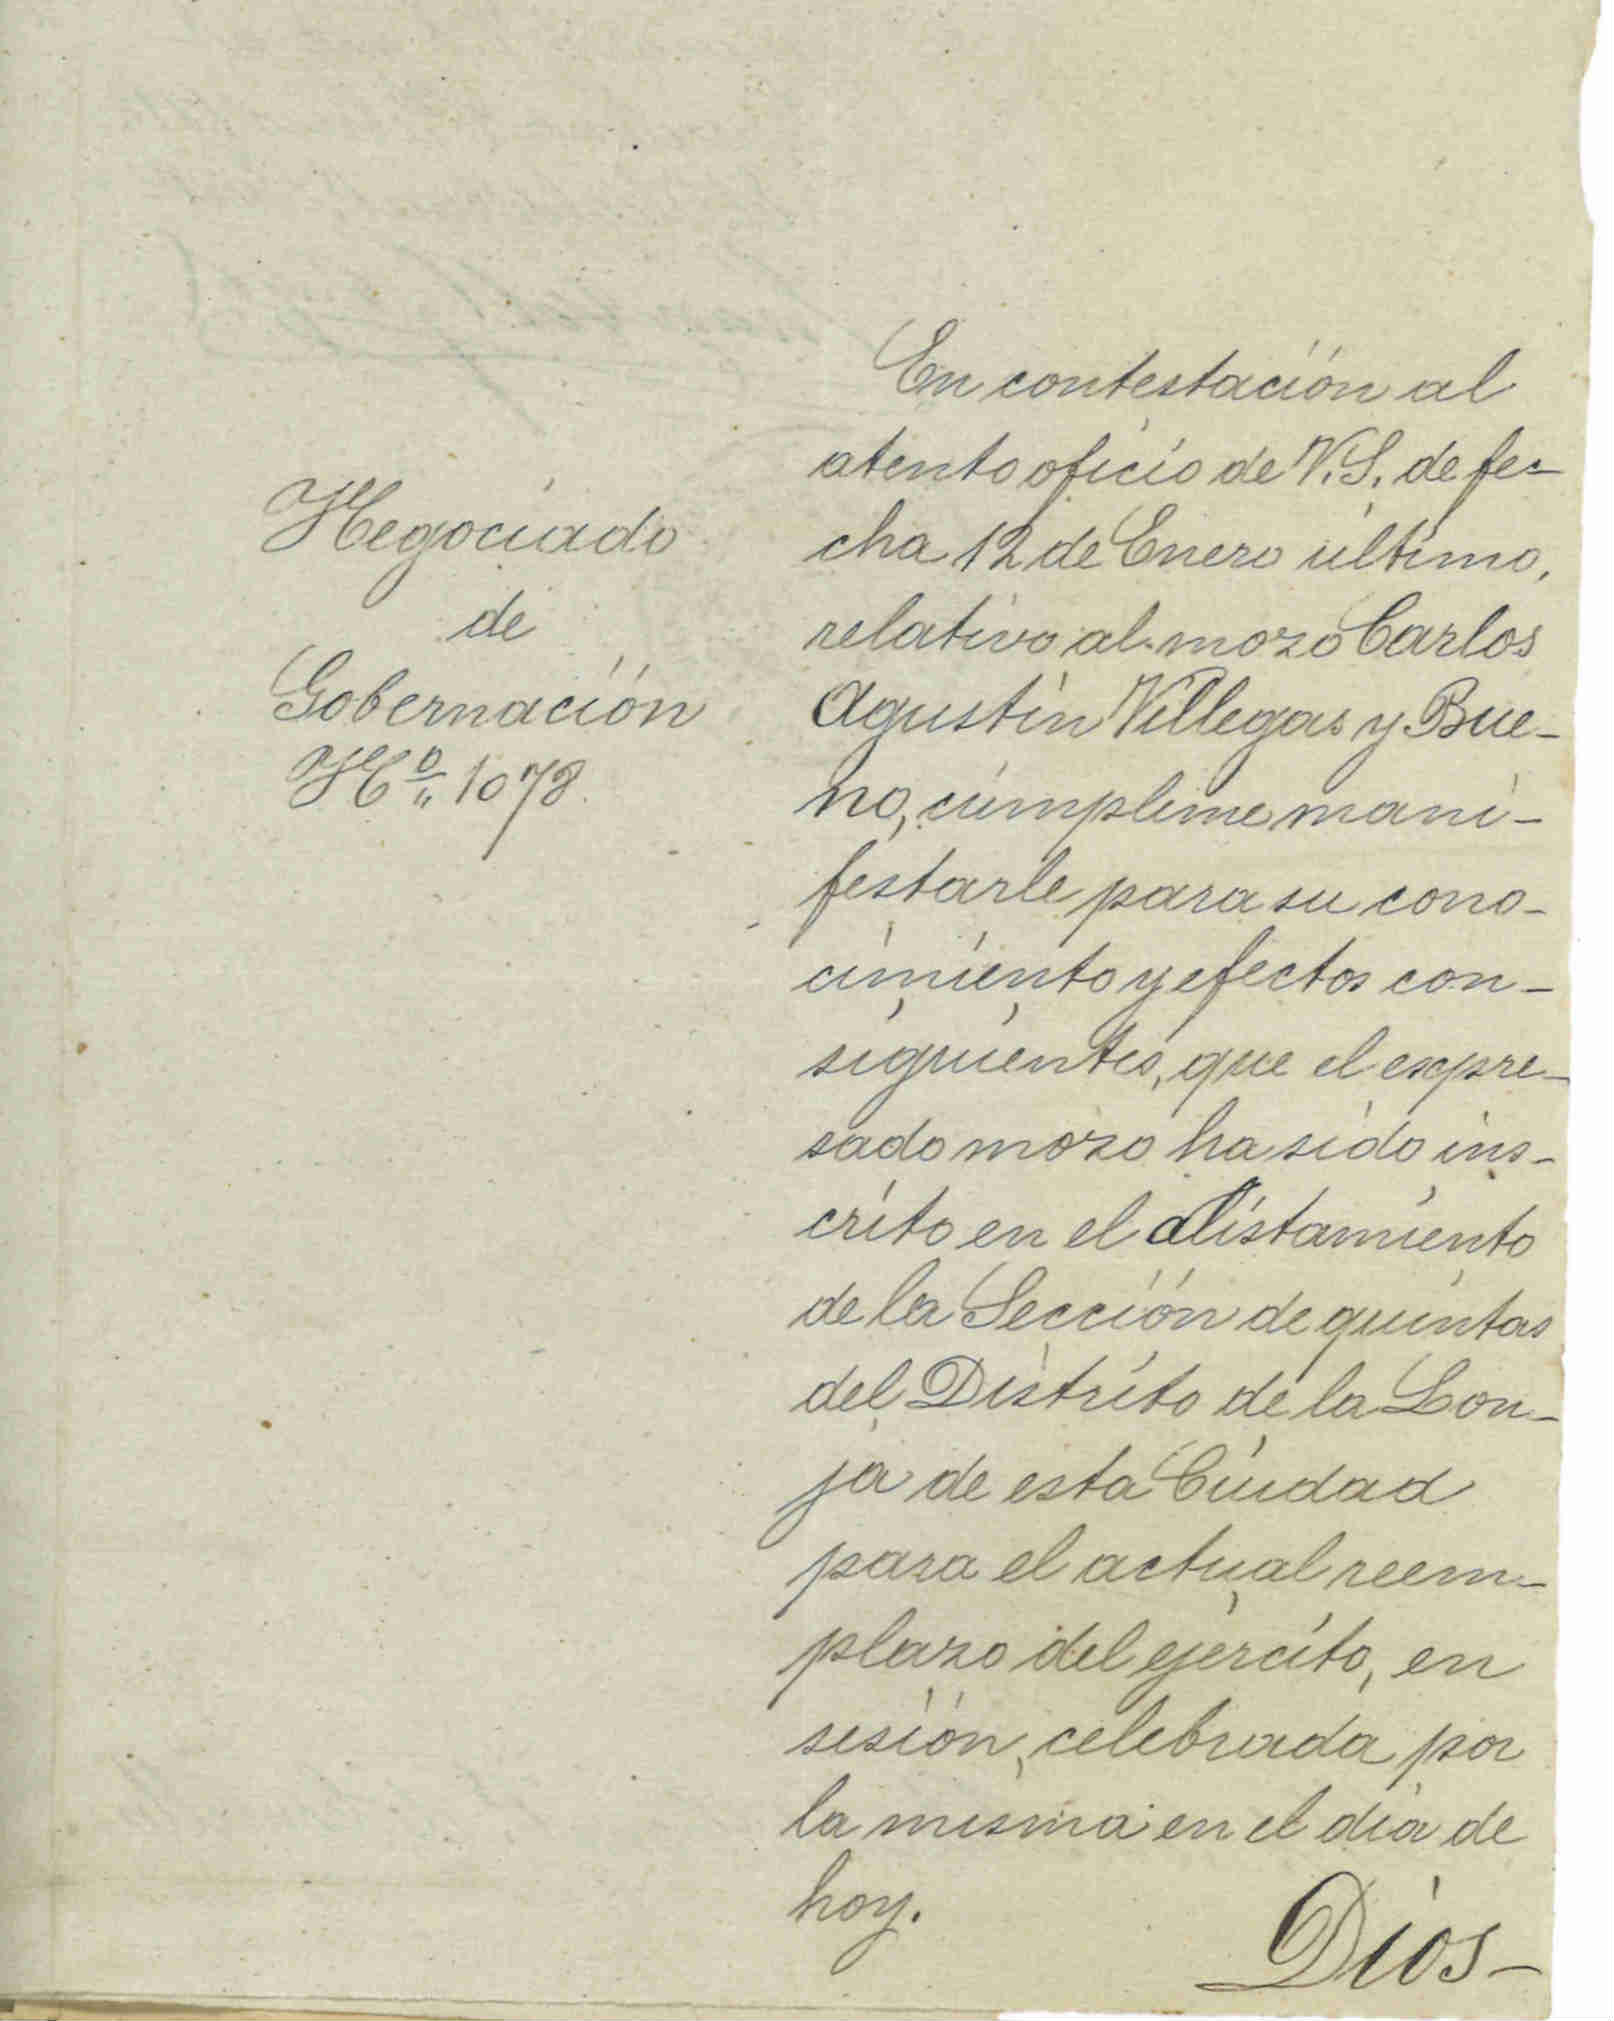 Negociado
de
Gobernación
Nº 1078.
En contestación al
atento oficio de V.S. de fe-
cha 12 de Enero último,
relativo al mozo Carlos
Agustín Villegas y Bue-
no, cúmpleme mani-
festarle para su cono-
cimiento y efectos con-
siguientes, que el expre-
sado mozo ha sido ins-
crito en el alistamiento
de la Sección de quintas
del Distrito de la Lon-
ja de esta Ciudad
para el actual reem-
plazo del ejército, en
sesión, celebrada por
la misma en el día de
hoy.
Dios-